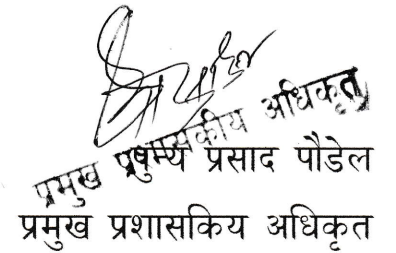 प्रमुख प्रशासकीय अधिकृत
प्रसाद पौडेल
प्रमुख प्रशासकिय अधिकृत